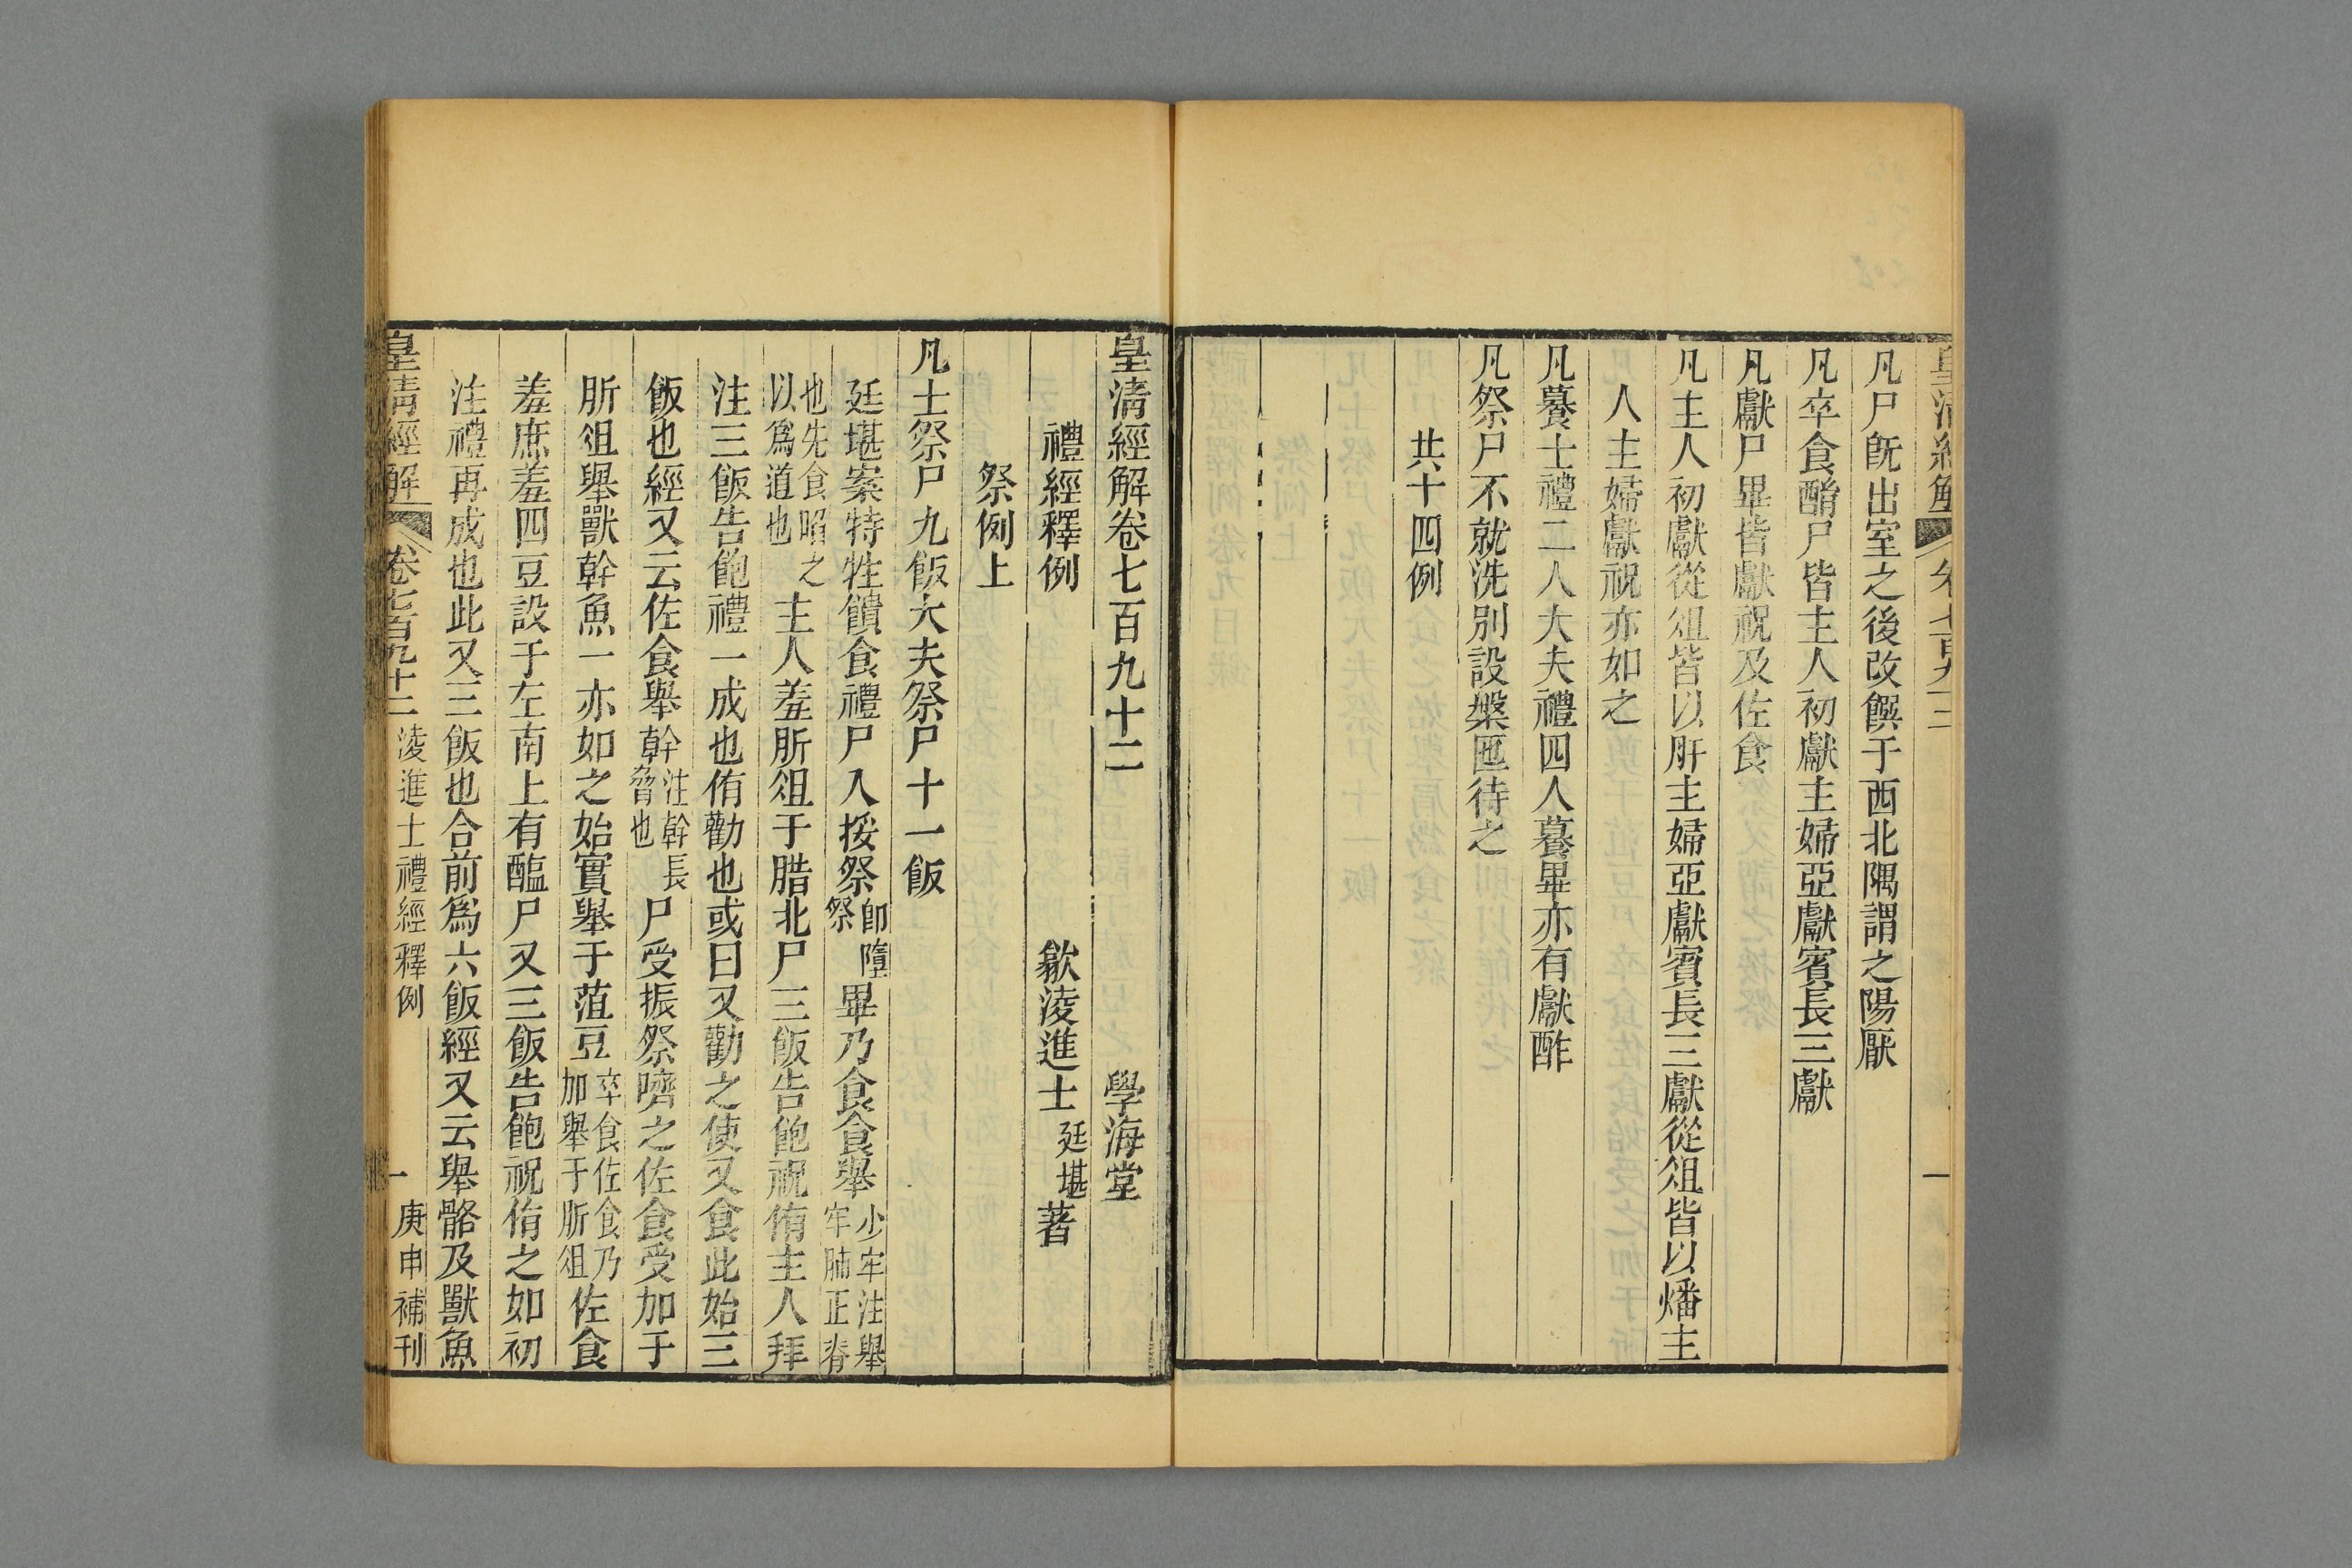 凡尸旣出室之後改饌于西北隅謂之陽厭
凡卒食酳尸皆主人初獻主婦亞獻賓長三獻
凡獻尸畢皆獻祝及佐食
凡主人初獻從俎皆以肝主婦亞獻賓長三獻從俎皆以燔主
人主婦獻祝亦如之
凡餕士禮二人大夫禮四人餕畢亦有獻酢
凡祭尸不就洗別設槃匜待之
共十四例
皇淸經解卷七百九十二 學海堂
禮經釋例 歙淩進士廷堪著
祭例上
凡士祭尸九飯大夫祭尸十一飯
廷堪案特牲饋食禮尸入挼祭卽墮祭畢乃食食舉少牢注舉牢肺正脊
也先食啗之以爲道也主人羞肵俎于腊北尸三飯告飽祝侑主人拜
注三飯告飽禮一成也侑勸也或曰又勸之使又食此始三
飯也經又云佐食舉幹注幹長脅也尸受振祭嚌之佐食受加于
肵俎舉獸幹魚一亦如之始實舉于菹豆卒食佐食乃加舉于肵俎佐食
羞庶羞四豆設于左南上有醢尸又三飯告飽祝侑之如初
注禮再成也此又三飯也合前爲六飯經又云舉骼及獸魚
皇淸經解 卷七百九十二 淩進士禮經釋例 一 庚申補刊